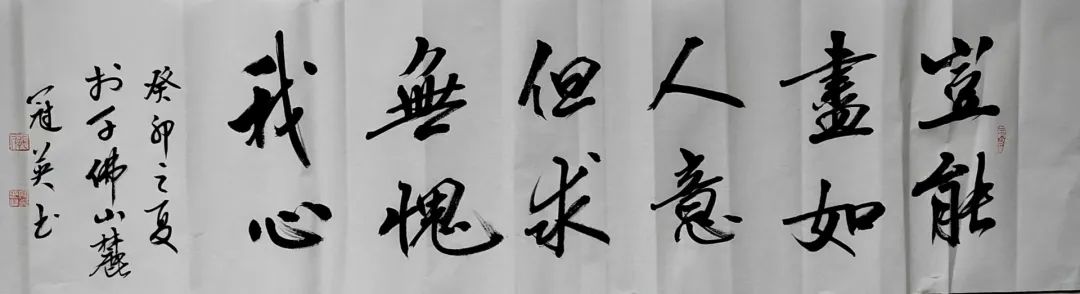 豈能
盡如
人意
但求
無愧
我心
癸卯之夏
於千佛山麓
冠英书